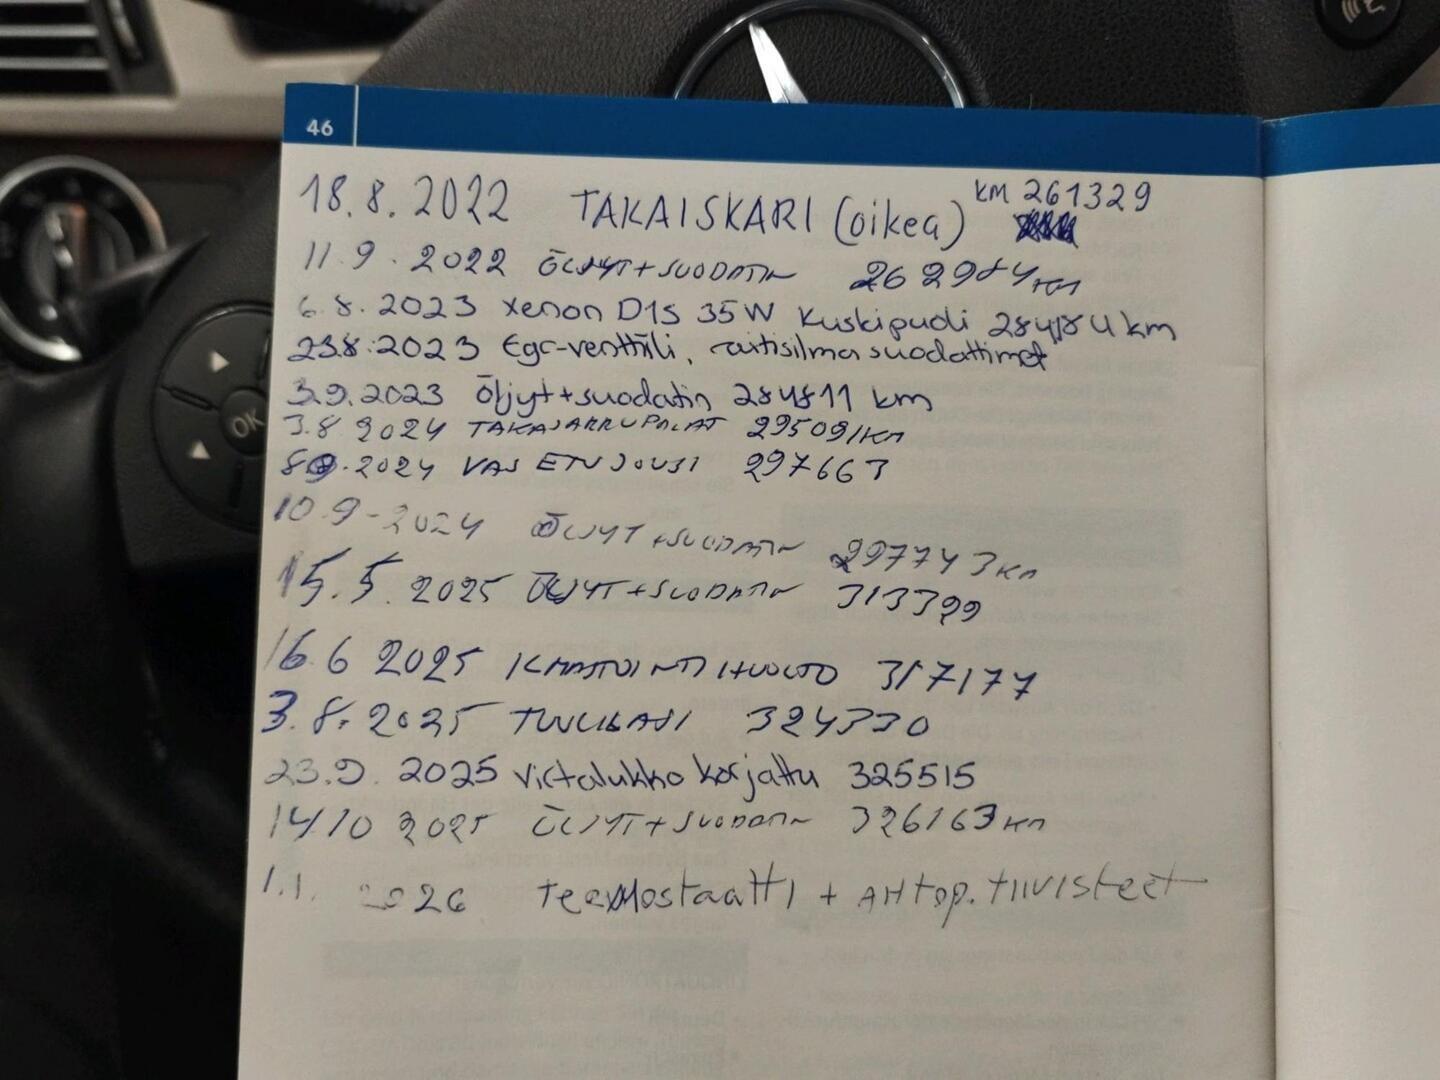 46
18.8.2022 TAKAISKARI (oikea) KM 261329
11.9.2022 ÖLJYT+SUODATIN 262984 km
6.8.2023 Xenon D1S 35W Kuskipuoli 284184 km
23.8.2023 Egr-venttiili, raitisilmasuodattimet
3.9.2023 Öljyt+suodatin 284811 km
3.8 2024 TAKAJARRUPALAT 295091 KM
8.9.2024 VAS ETUJOUSI 297663
10.9-2024 ÖLJYT+SUODATIN 297743 Km
15.5.2025 ÖLJYT+SUODATIN 313399
16.6 2025 ILMASTOINTIHUOLTO 317177
3.8.2025 TUULILASI 324330
23.9. 2025 Virtalukko korjattu 325515
14.10 2025 ÖLJYT+SUODATIN 326163 Km
1.1. 2026 Termostaatti + AHTOP. tiivisteet
OK